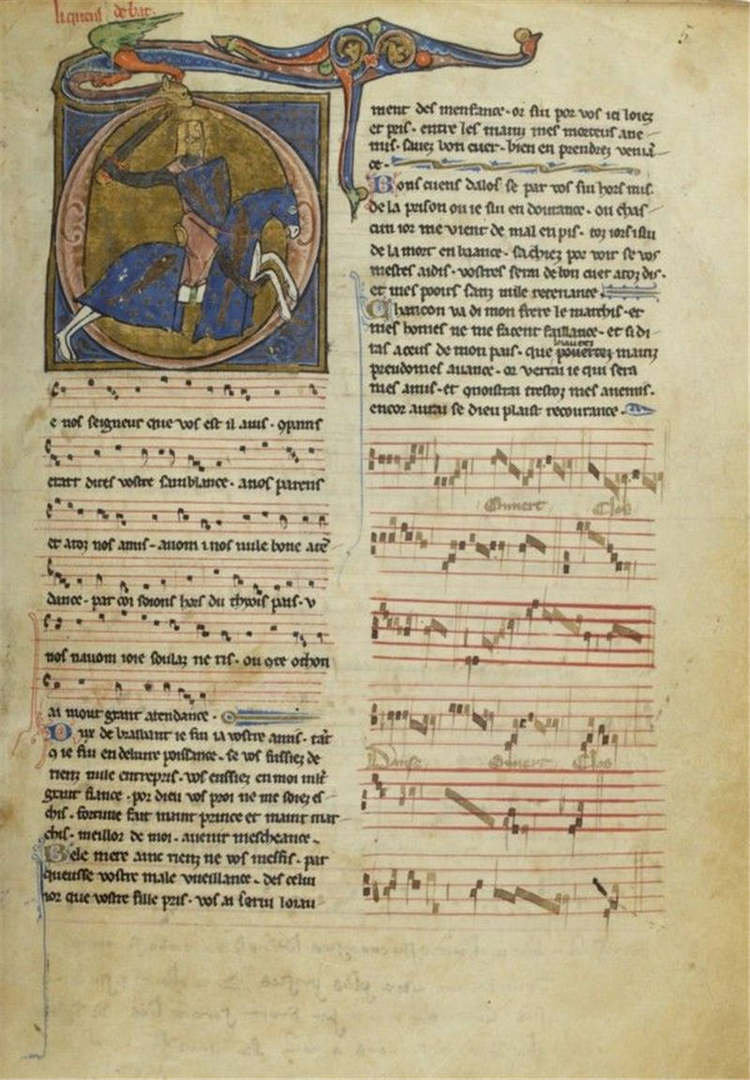 li quens de bar.
5
e nos seigneur que vos est il auis. 9pains
et art dites vostre samblance. a nos parens
et a toz nos amis. auom i nos nule bone ate
dance. par coi soions hors du thyois pais. v
nos nauom ioie soulaz ne ris. ou qte othon
ai mout grant atendance.
Dux de braibant ie fui ia vostre amis. tāt
9 ie fui en deliure poissance. se vos fussiez de
riens nule entrepris. vos eussiez en moi mlt
grant fiance. por dieu vos proi ne me soiez es
chis. fortune fait maint prince et maint mar
chis. meillor de moi. auenir mescheance.
Bele mere ainc riens ne vos meffis. par
queusse vostre male vueillance. des celui
ior que vostre fille pris. vos ai serui loiau
ment des menfance. or sui por vos ici loiez
et pris. entre les mains mes morteus ane
mis. sauez bon cuer. bien en prendrez venia
ce.
Bons cuens dalos se par vos sui hors mis.
de la prison ou ie sui en doutance. ou chas
cun ior me vient de mal en pis. toz iors i sui
de la mort en baance. sachiez por voir se vos
mestes aidis. vostres serai de bon cuer a toz dis.
et mes pooirs sanz nule retenance.
Chancon va di mon frere le marchis. et
mes homes ne me facent faillance. et si di
ras a ceus de mon pais. que
pouertez mainz
preudomes auance. or verrai ie qui sera
mes amis. et quoistrai trestoz mes anemis.
encor aurai se dieu plaist recourance.
Ouuert Clos
Danse Ouuert Clos